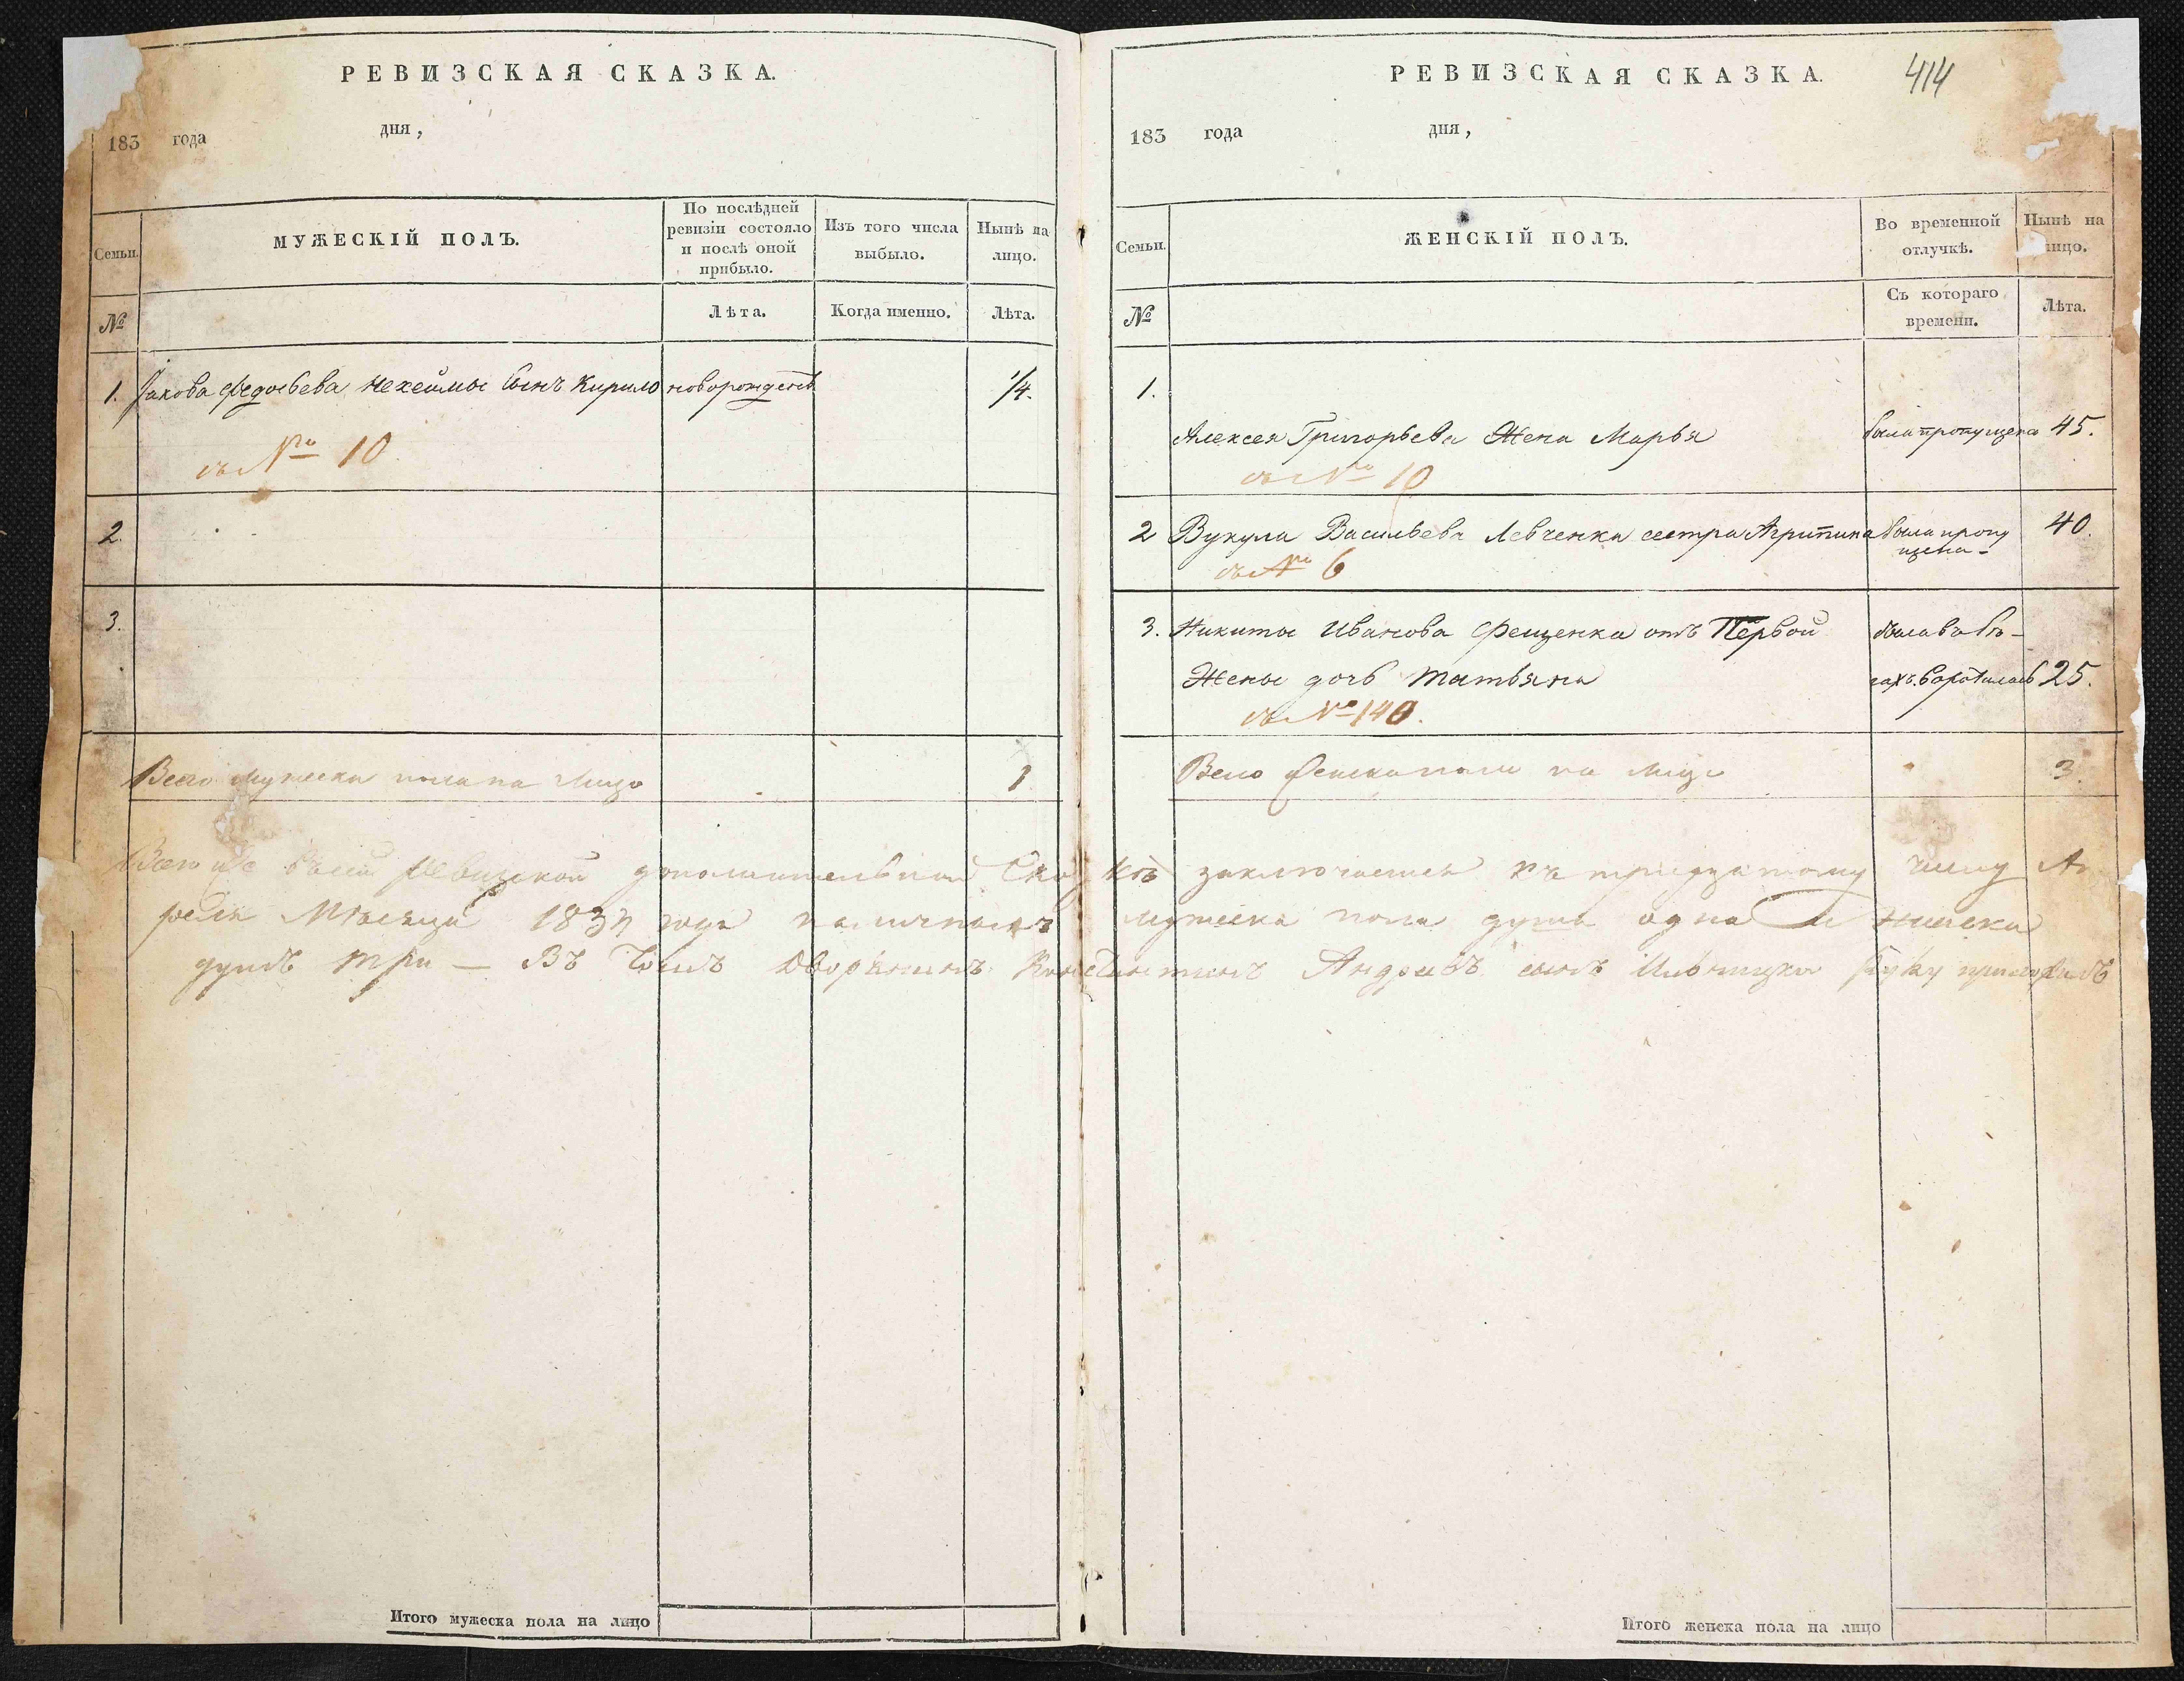 РЕВИЗСКАЯ СКАЗКА.
183 года дня,
Семьи.
МУЖЕСКІЙ ПОЛЪ.
По послѣдней
ревизіи состояло
и послѣ оной
прибыло.
Изъ того числа
выбыло.
Нынѣ на
лицо.
№
Лѣта.
Когда именно.
Лѣта.
1. Якова Федосѣева сынъ Кирило новорожденъ 1/4.
въ № 10.
2.
3.
Всего мужеска пола на лицо 1
РЕВИЗСКАЯ СКАЗКА. 414
183 года дня,
Семьи.
ЖЕНСКІЙ ПОЛЪ.
Во временной
отлучкѣ.
Нынѣ на
лицо.
№
Съ котораго
времени.
Лѣта.
1.
Алексея Григорьева Жена Марья была пропущена 45.
въ № 10
2 Вукула Васильева Левченка сестра Агрипина была пропу
щена 40.
въ № 6
3. Никиты Иванова Фещенка отъ Первой была въ бѣ-
Жены дочь Татьяна гахъ. воротилась 25.
въ № 140.
Всего женска пола на лицо 3.
Всего въ сей ревизской дополнительной Сказкѣ заключается къ тридцатому числу Ап
реля Мѣсяца 183 года мужеска пола душа одна и женска
душъ три — Въ томъ Дворянинъ Константинъ Андреевъ сынъ руку приложилъ
Итого мужеска пола на лицо
Итого женска пола на лицо